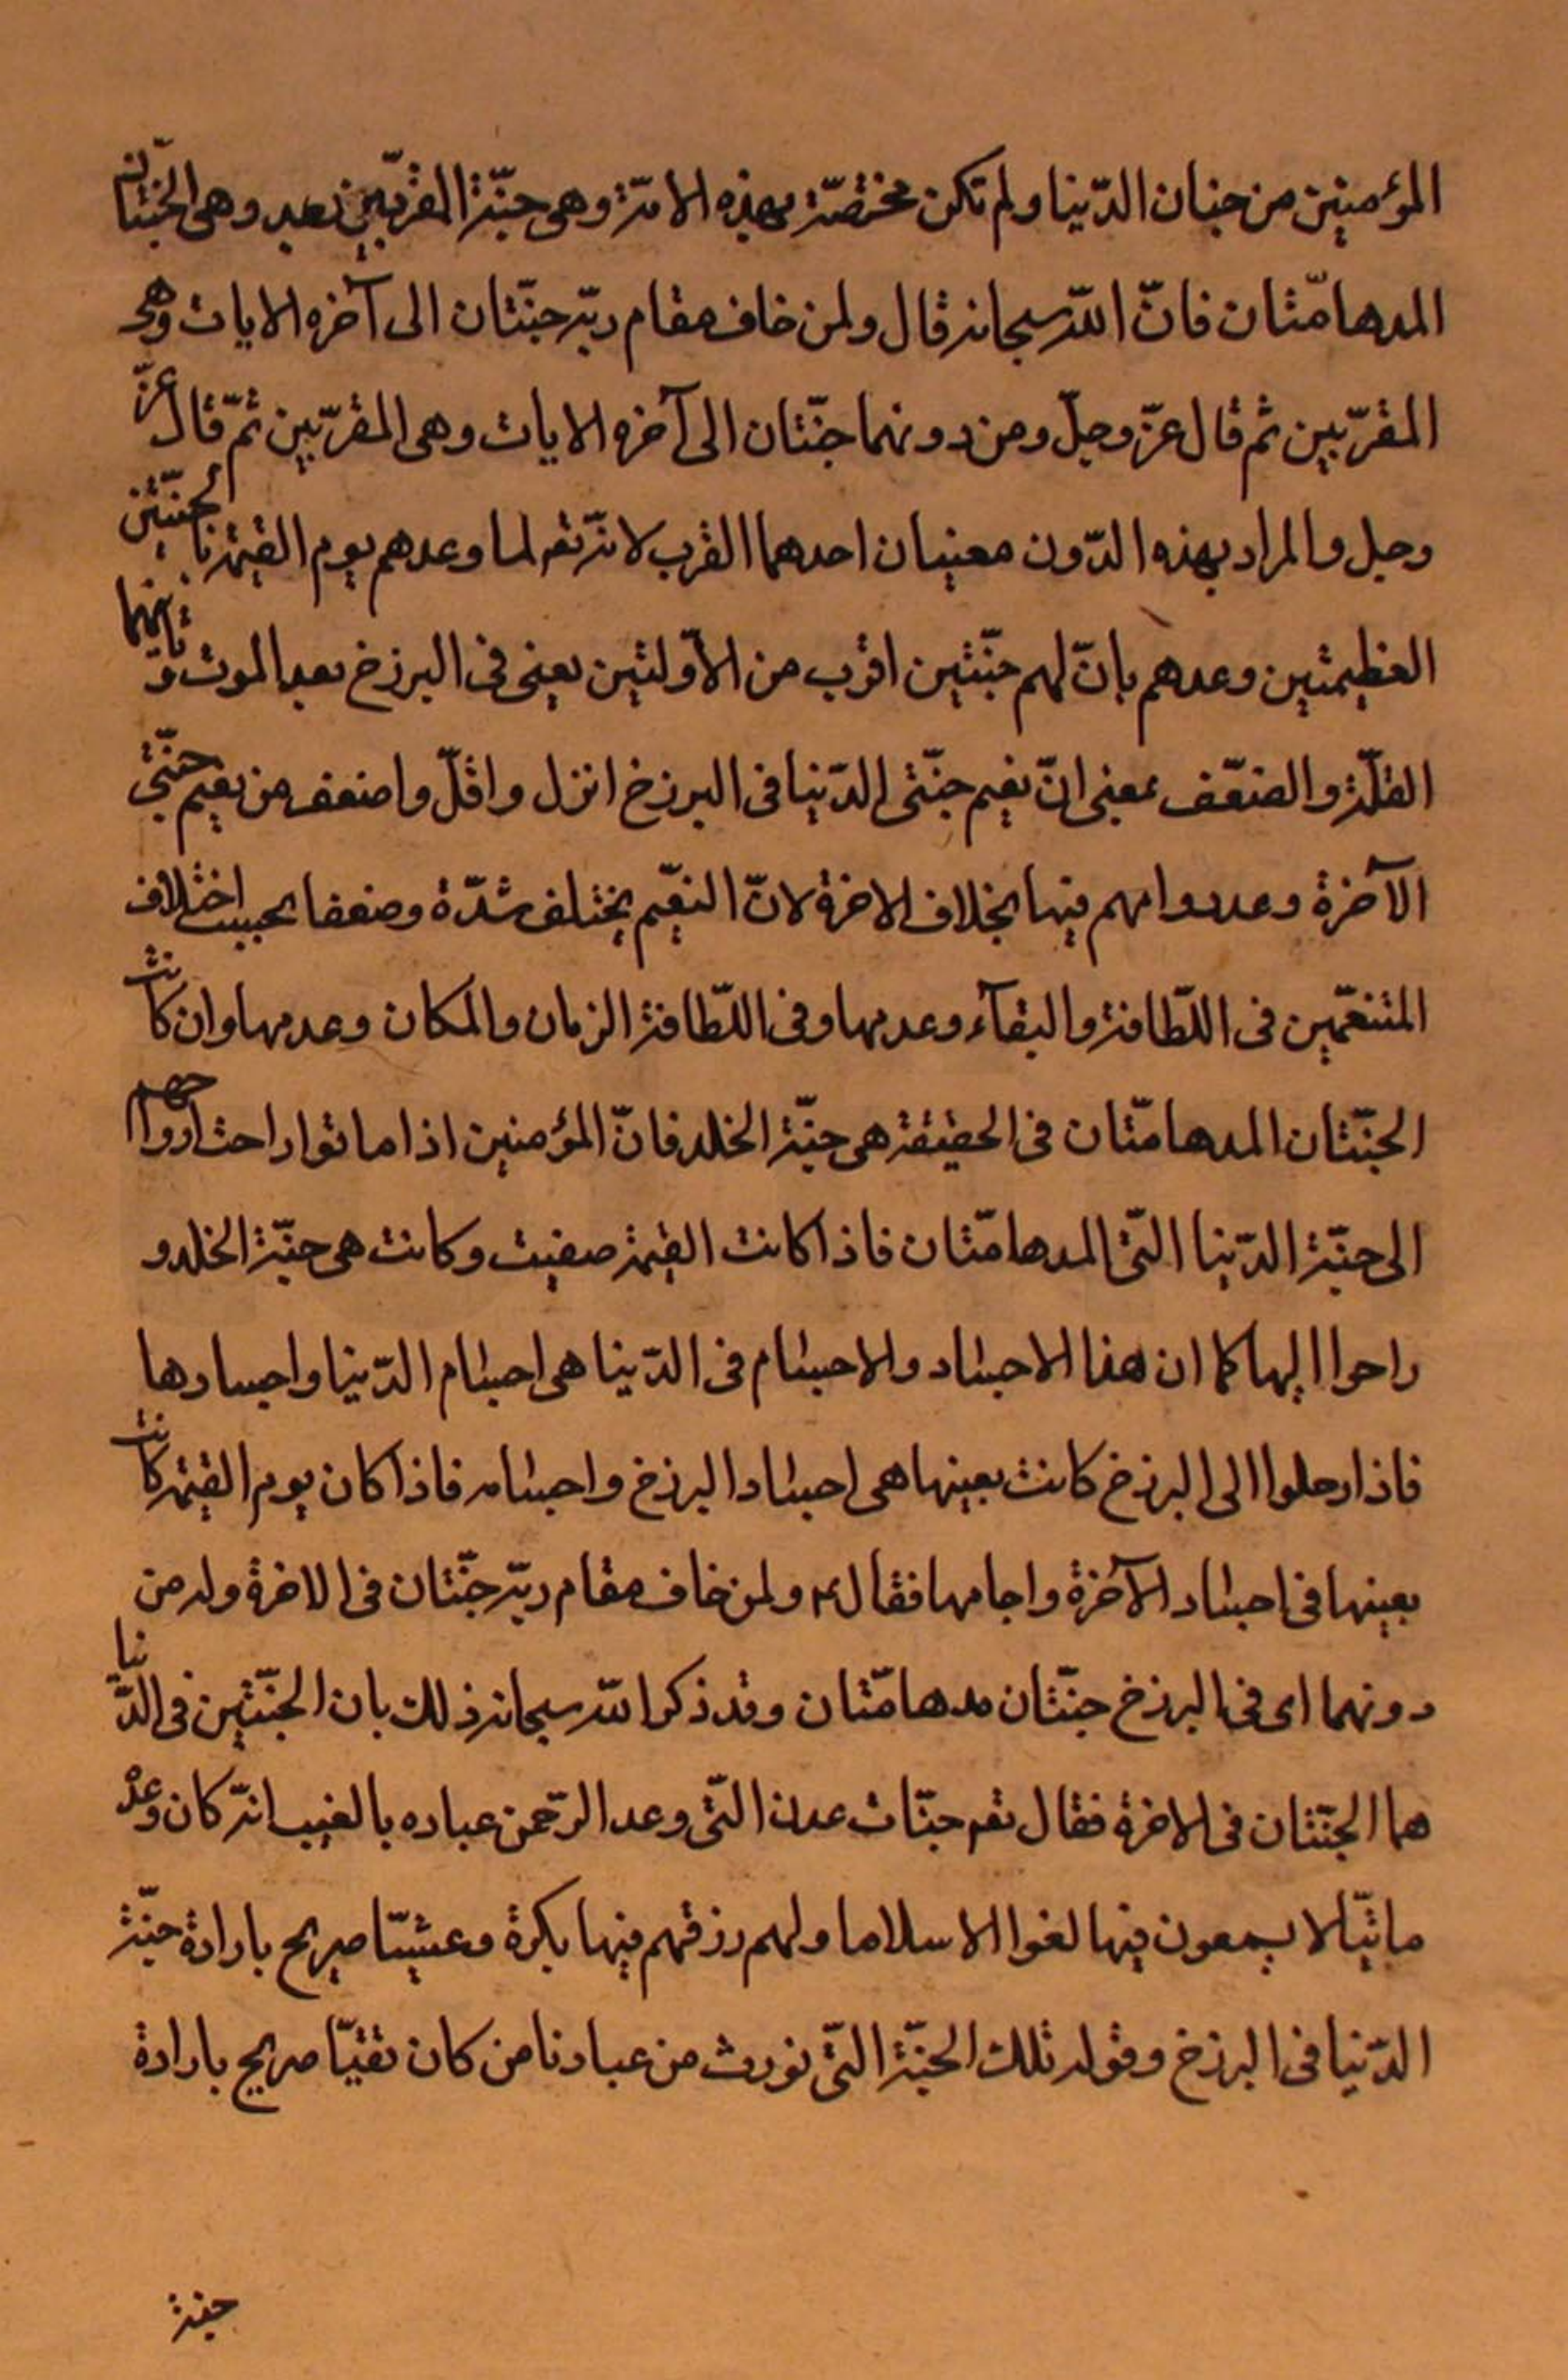 المؤمنين من جنان الدّنيا ولم تكن مختصّة بهذه الامّة وهى جنّة المقرّبين بعد وهى الجنّتان
المدهامّتان فانّ اللّه سبحانه قال ولمن خاف مقام ربّه جنّتان الى آخره الايات وهى
المقرّبين ثم قال عزّ وجلّ ومن دونهما جنّتان الى آخره الايات وهى المقرّبين ثمّ قال عزّ
وجل والمراد بهذه الدّون معنيان احدهما القرب لانّه تعر لما وعدهم يوم القيمة بالجنّتين
العظيمتين وعدهم بانّ لهم جنّتين اقرب من الاوّلتين يعنى فى البرزخ بعد الموت وثانيهما
القلّة والضعّف بمعنى انّ نعيم جنّتى الدّنيا فى البرزخ انزل واقلّ واضعف من نعيم جنّتى
الآخرة وعددوامهم فيها بخلاف الاخرة لانّ النعّيم يختلف شدّة وضعفا بحسب اختلاف
المتنعّمين فى اللّطافة والبقآء وعدمها وفى اللّطافة الزمان والمكان وعدمها وان كانت
الجنّتان المدهامّتان فى الحقيقة هى جنّة الخلد فانّ المؤمنين اذا ماتوا راحت ارواحهم
الى جنّة الدّنيا التّى المدهامّتان فاذا كانت القيمة صفيت وكانت هى جنّة الخلد و
راحوا اليها كما ان هذا الاجساد والاجسام فى الدّنيا هى اجسام الدّنيا واجسادها
فاذا رحلوا الى البرزخ كانت بعينها هى اجساد البرزخ واجسامه فاذا كان يوم القيمة كانت
بعينها فى اجساد الآخرة واجامها فقال ولمن خاف مقام ربّه جنّتان فى الاخرة وله من
دونهما اى فى البرزخ جنّتان مدهامّتان وقد ذكر اللّه سبحانه ذلك بان الجنّتين فى الدّنيا
هما الجنّتان فى الاخرة فقال تعر جنّات عدن التّى وعد الرّحمن عباده بالغيب انّه كان وعده
ماتيّا لا يسمعون فيها لغوا الا سلاما ولهم رزقهم فيها بكرة وعشيّا صريح بارادة جنّة
الدّنيا فى البرزخ وقوله تلك الجنّة التّى نورث من عبادنا من كان تقيّا صريح بارادة
جنة